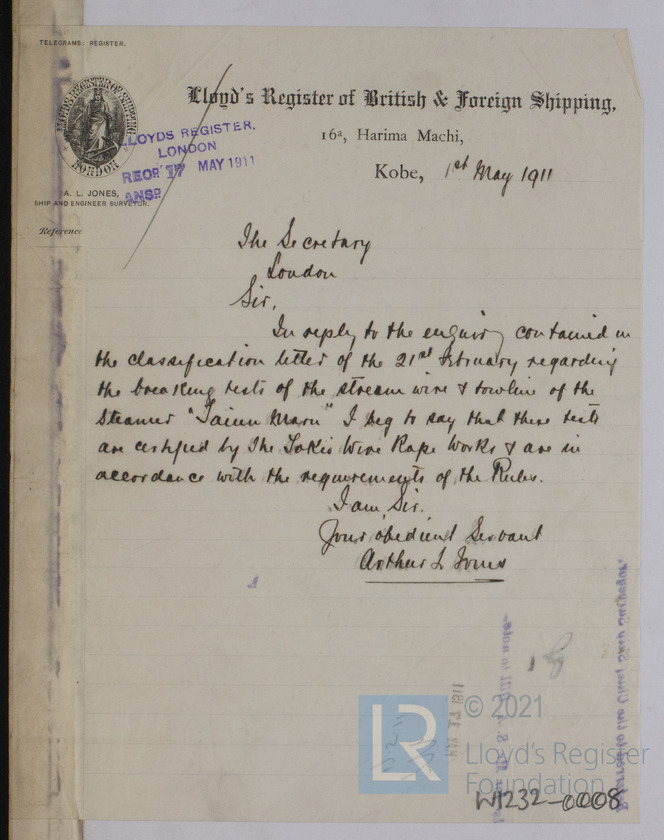 TELEGRAMS: REGISTER.
LLOYD'S REGISTER OF SHIPPING
LONDON
Lloyd's Register of British & Foreign Shipping,
16a, Harima Machi,
Kobe, 1st May 1911
LLOYDS REGISTER.
LONDON
RECD. 17 MAY 1911
ANSD.
A. L. JONES,
SHIP AND ENGINEER SURVEYOR.
Reference
The Secretary
London
Sir,
In reply to the enquiry contained in
the classification letter of the 21st February regarding
the breaking tests of the stream wire & towline of the
Steamer "Taiun Maru" I beg to say that these tests
are certified by The Tokio Wire Rope Works & are in
accordance with the requirements of the Rules.
I am, Sir.
Your obedient Servant
Arthur L Jones
Referred to the Chief Ship Surveyor.
© 2021
LR
Lloyd's Register
Foundation
W1232-0008